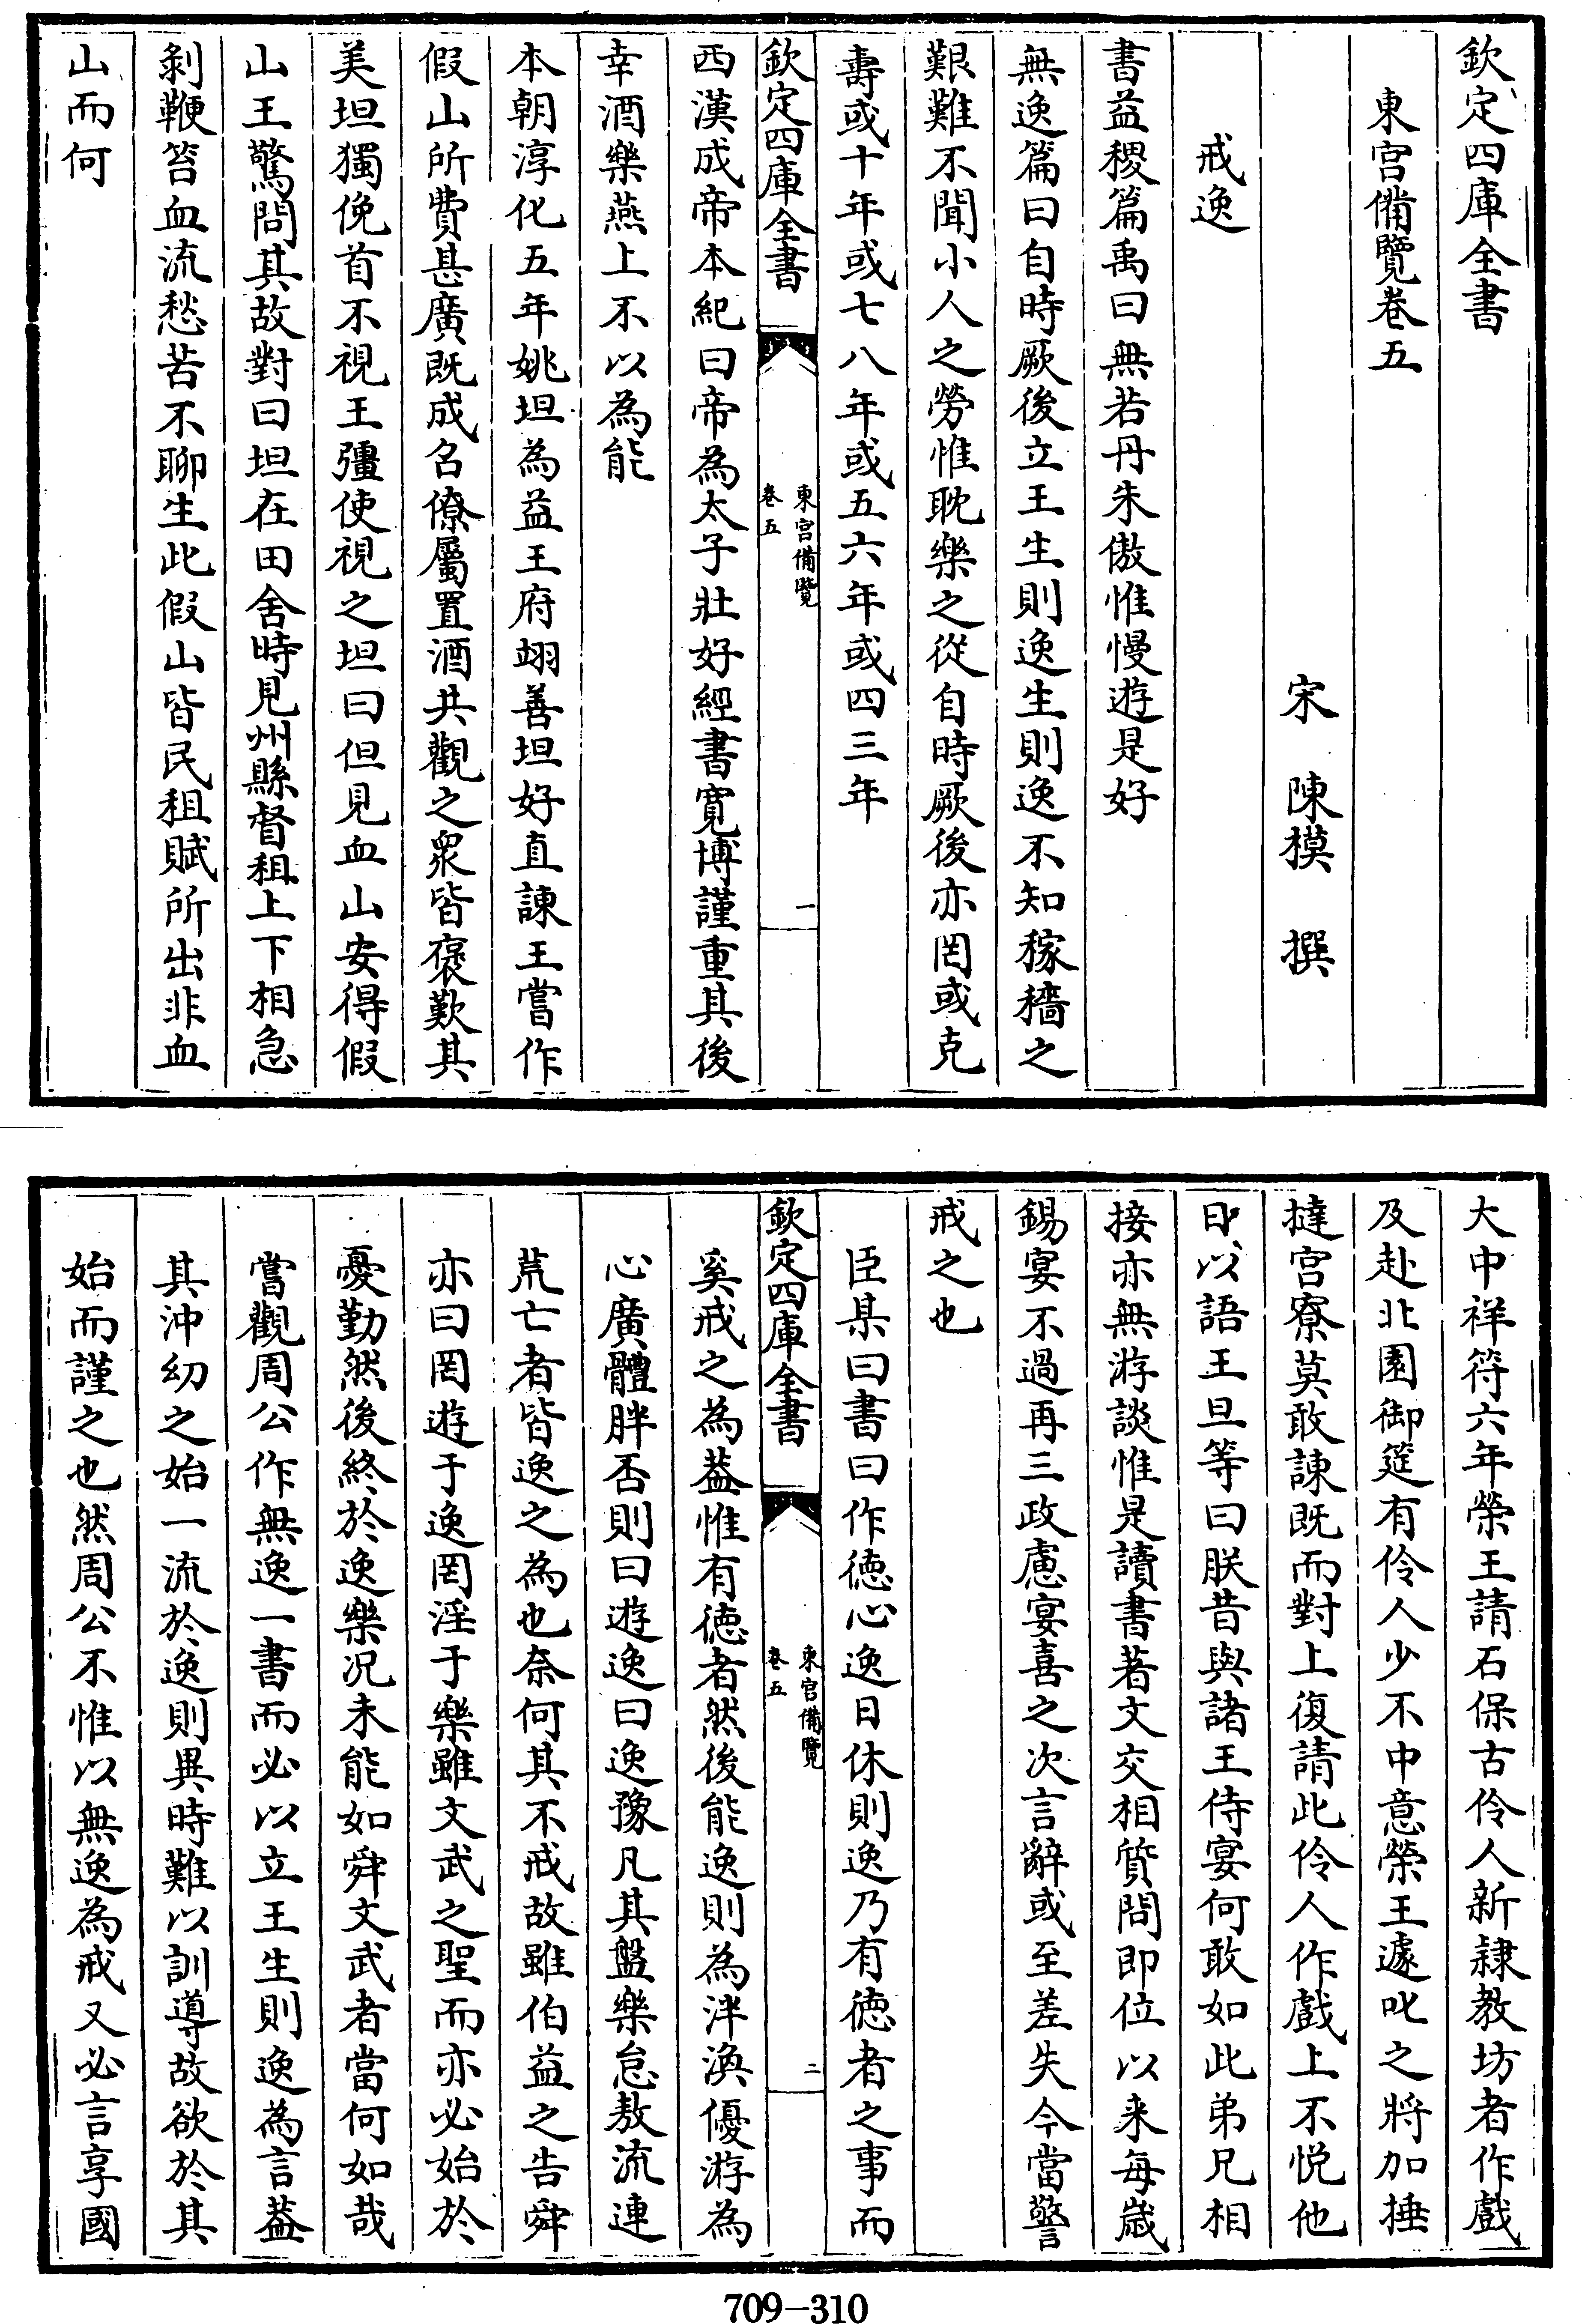 欽定四庫全書
東宮備覽卷五
宋 陳模 撰
戒逸
書益稷篇禹曰無若丹朱傲惟慢遊是好
無逸篇曰自時厥後立王生則逸生則逸不知稼穡之
艱難不聞小人之勞惟耽樂之從自時厥後亦罔或克
壽或十年或七八年或五六年或四三年
欽定四庫全書
東宮備覽
卷五
一
西漢成帝本紀曰帝為太子壯好經書寬博謹重其後
幸酒樂燕上不以為能
本朝淳化五年姚坦為益王府翊善坦好直諫王嘗作
假山所費甚廣既成名僚屬置酒共觀之衆皆褒歎其
美坦獨俛首不視王彊使視之坦曰但見血山安得假
山王驚問其故對曰坦在田舍時見州縣督租上下相急
剝鞭笞血流愁苦不聊生此假山皆民租賦所出非血
山而何
大中祥符六年榮王請石保古伶人新隷教坊者作戲
及赴北園御筵有伶人少不中意榮王遽叱之將加捶
撻宮寮莫敢諫既而對上復請此伶人作戲上不悅他
日以語王旦等曰朕昔與諸王侍宴何敢如此弟兄相
接亦無游談惟是讀書著文交相質問即位以来每嵗
錫宴不過再三政慮宴喜之次言辭或至差失今當警
戒之也
臣某曰書曰作德心逸日休則逸乃有德者之事而
欽定四庫全書
東宮備覽
卷五
二
奚戒之為葢惟有德者然後能逸則為泮渙優游為
心廣體胖否則曰遊逸曰逸豫凡其盤樂怠敖流連
荒亡者皆逸之為也奈何其不戒故雖伯益之告舜
亦曰罔遊于逸罔淫于樂雖文武之聖而亦必始於
憂勤然後終於逸樂况未能如舜文武者當何如哉
嘗觀周公作無逸一書而必以立王生則逸為言葢
其沖幼之始一流於逸則異時難以訓導故欲於其
始而謹之也然周公不惟以無逸為戒又必言享國
709-310